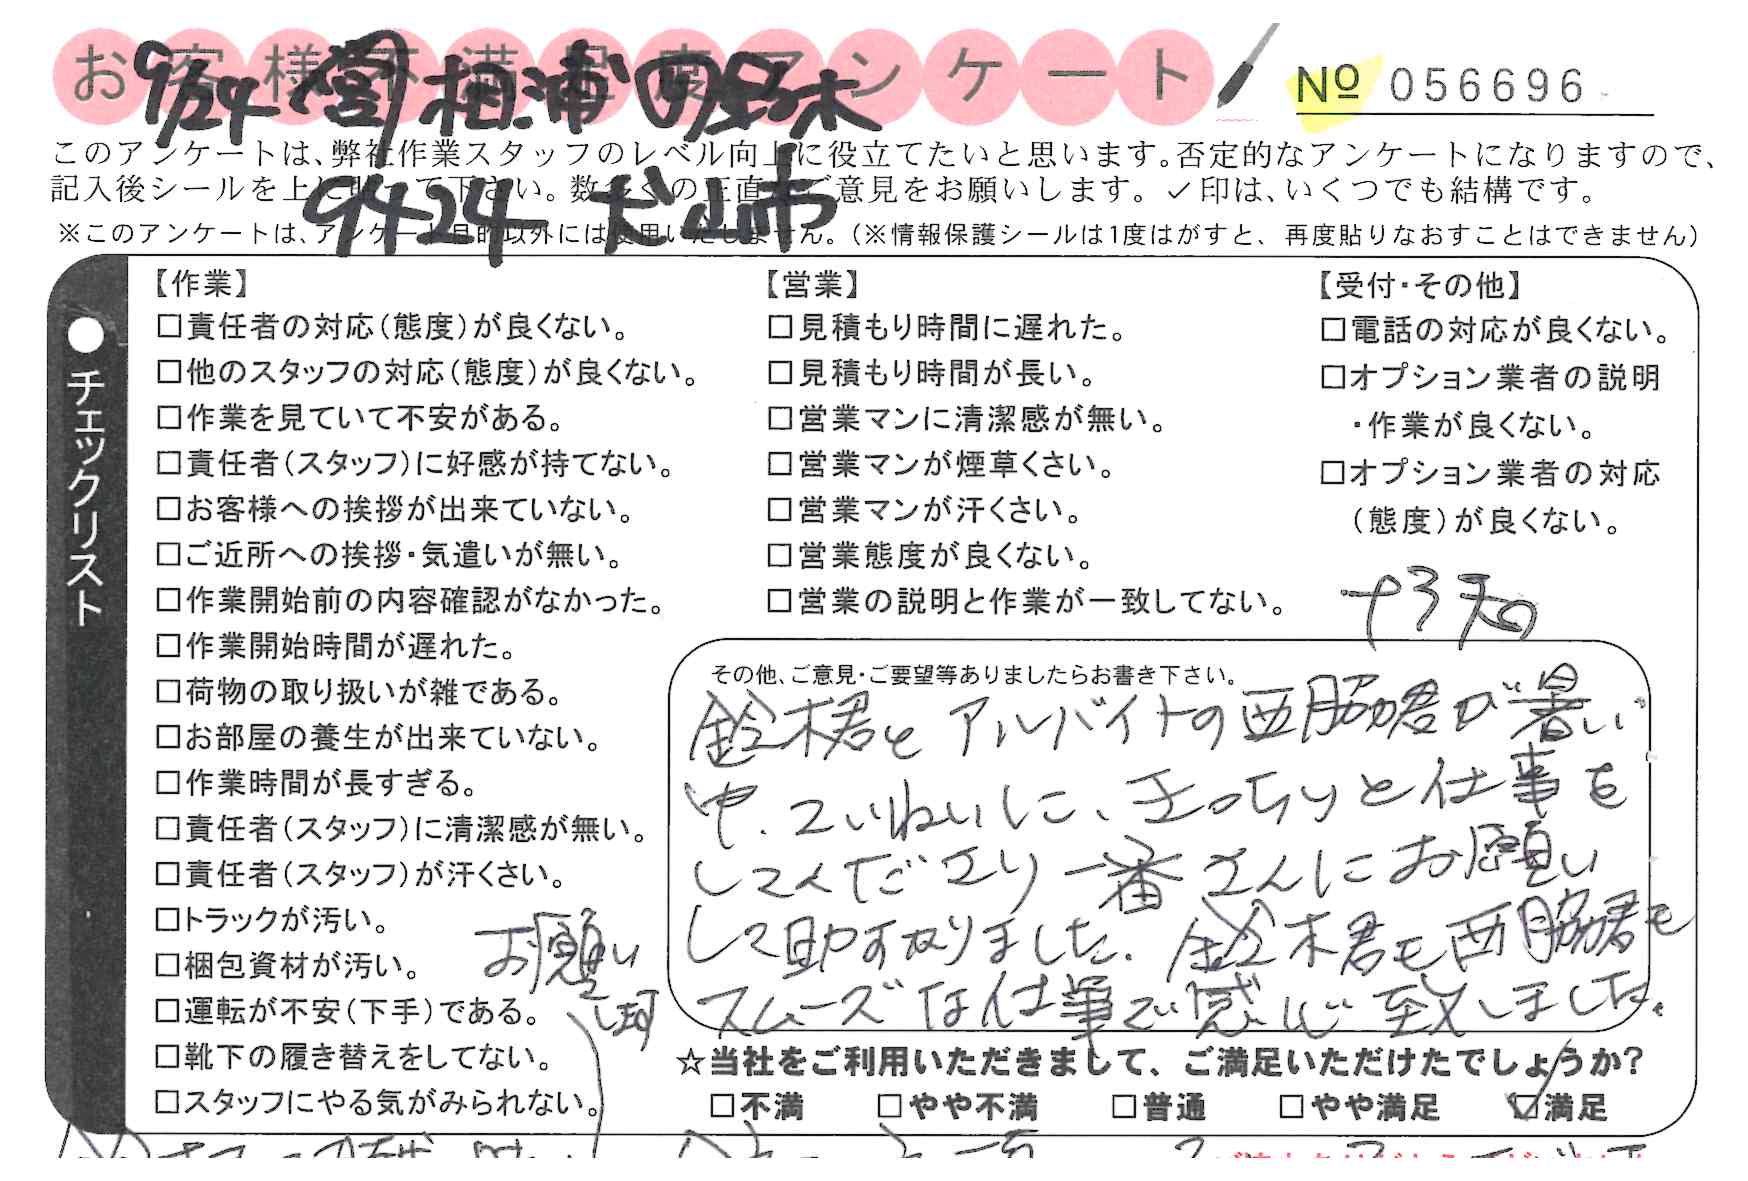 お客様不満足度アンケート
№ 056696
9/24 営 相浦 日野 鈴木
9424 犬山市
このアンケートは、弊社作業スタッフのレベル向上に役立てたいと思います。否定的なアンケートになりますので、
記入後シールを上に貼って下さい。数多くの正直なご意見をお願いします。✓印は、いくつでも結構です。
※このアンケートは、アンケート目的以外には使用いたしません。(※情報保護シールは1度はがすと、再度貼りなおすことはできません)
●チェックリスト
【作業】
□責任者の対応(態度)が良くない。
□他のスタッフの対応(態度)が良くない。
□作業を見ていて不安がある。
□責任者(スタッフ)に好感が持てない。
□お客様への挨拶が出来ていない。
□ご近所への挨拶・気遣いが無い。
□作業開始前の内容確認がなかった。
□作業開始時間が遅れた。
□荷物の取り扱いが雑である。
□お部屋の養生が出来ていない。
□作業時間が長すぎる。
□責任者(スタッフ)に清潔感が無い。
□責任者(スタッフ)が汗くさい。
□トラックが汚い。
□梱包資材が汚い。
□運転が不安(下手)である。
□靴下の履き替えをしてない。
□スタッフにやる気がみられない。
【営業】
□見積もり時間に遅れた。
□見積もり時間が長い。
□営業マンに清潔感が無い。
□営業マンが煙草くさい。
□営業マンが汗くさい。
□営業態度が良くない。
□営業の説明と作業が一致してない。
【受付・その他】
□電話の対応が良くない。
□オプション業者の説明
・作業が良くない。
□オプション業者の対応
(態度)が良くない。
その他、ご意見・ご要望等ありましたらお書き下さい。
鈴木君とアルバイトの西脇君が暑い
中、ていねいに、きっちりと仕事を
してくださり一番さんにお願い
して助すかりました。鈴木君も西脇君も
スムーズな仕事で感じ致しました。
お願い
☆当社をご利用いただきまして、ご満足いただけたでしょうか?
□不満 □やや不満 □普通 □やや満足 ☑満足